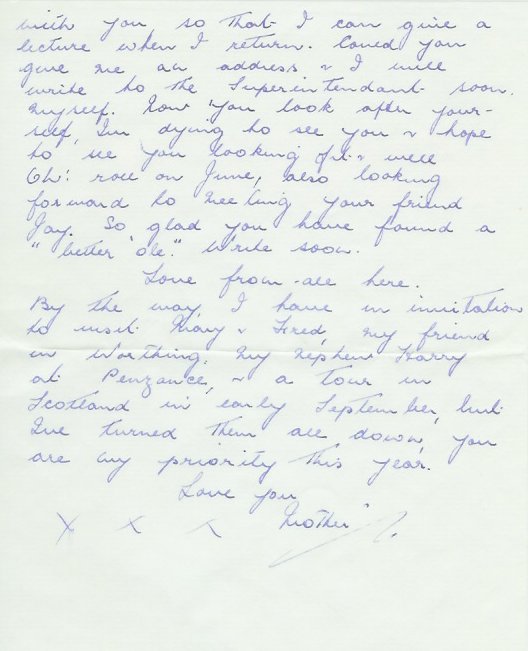 with you so that I can give a
lecture when I return. Could you
give me an address & I will
write to the Superintendant soon.
myself. Now you look after your-
self, I'm dying to see you & hope
to see you looking fit & well
Oh! roll on June, also looking
forward to meeting your friend
Jay. So glad you have found a
"better 'ole." Write soon.
Love from all here.
By the way, I have in invitation
to visit Mary & Fred, my friend
in Worthing. My nephew Harry
at Penzance, & a tour in
Scotland in early September, but
I've turned them all down, you
are my priority this year.
Love you
Mother
x x x